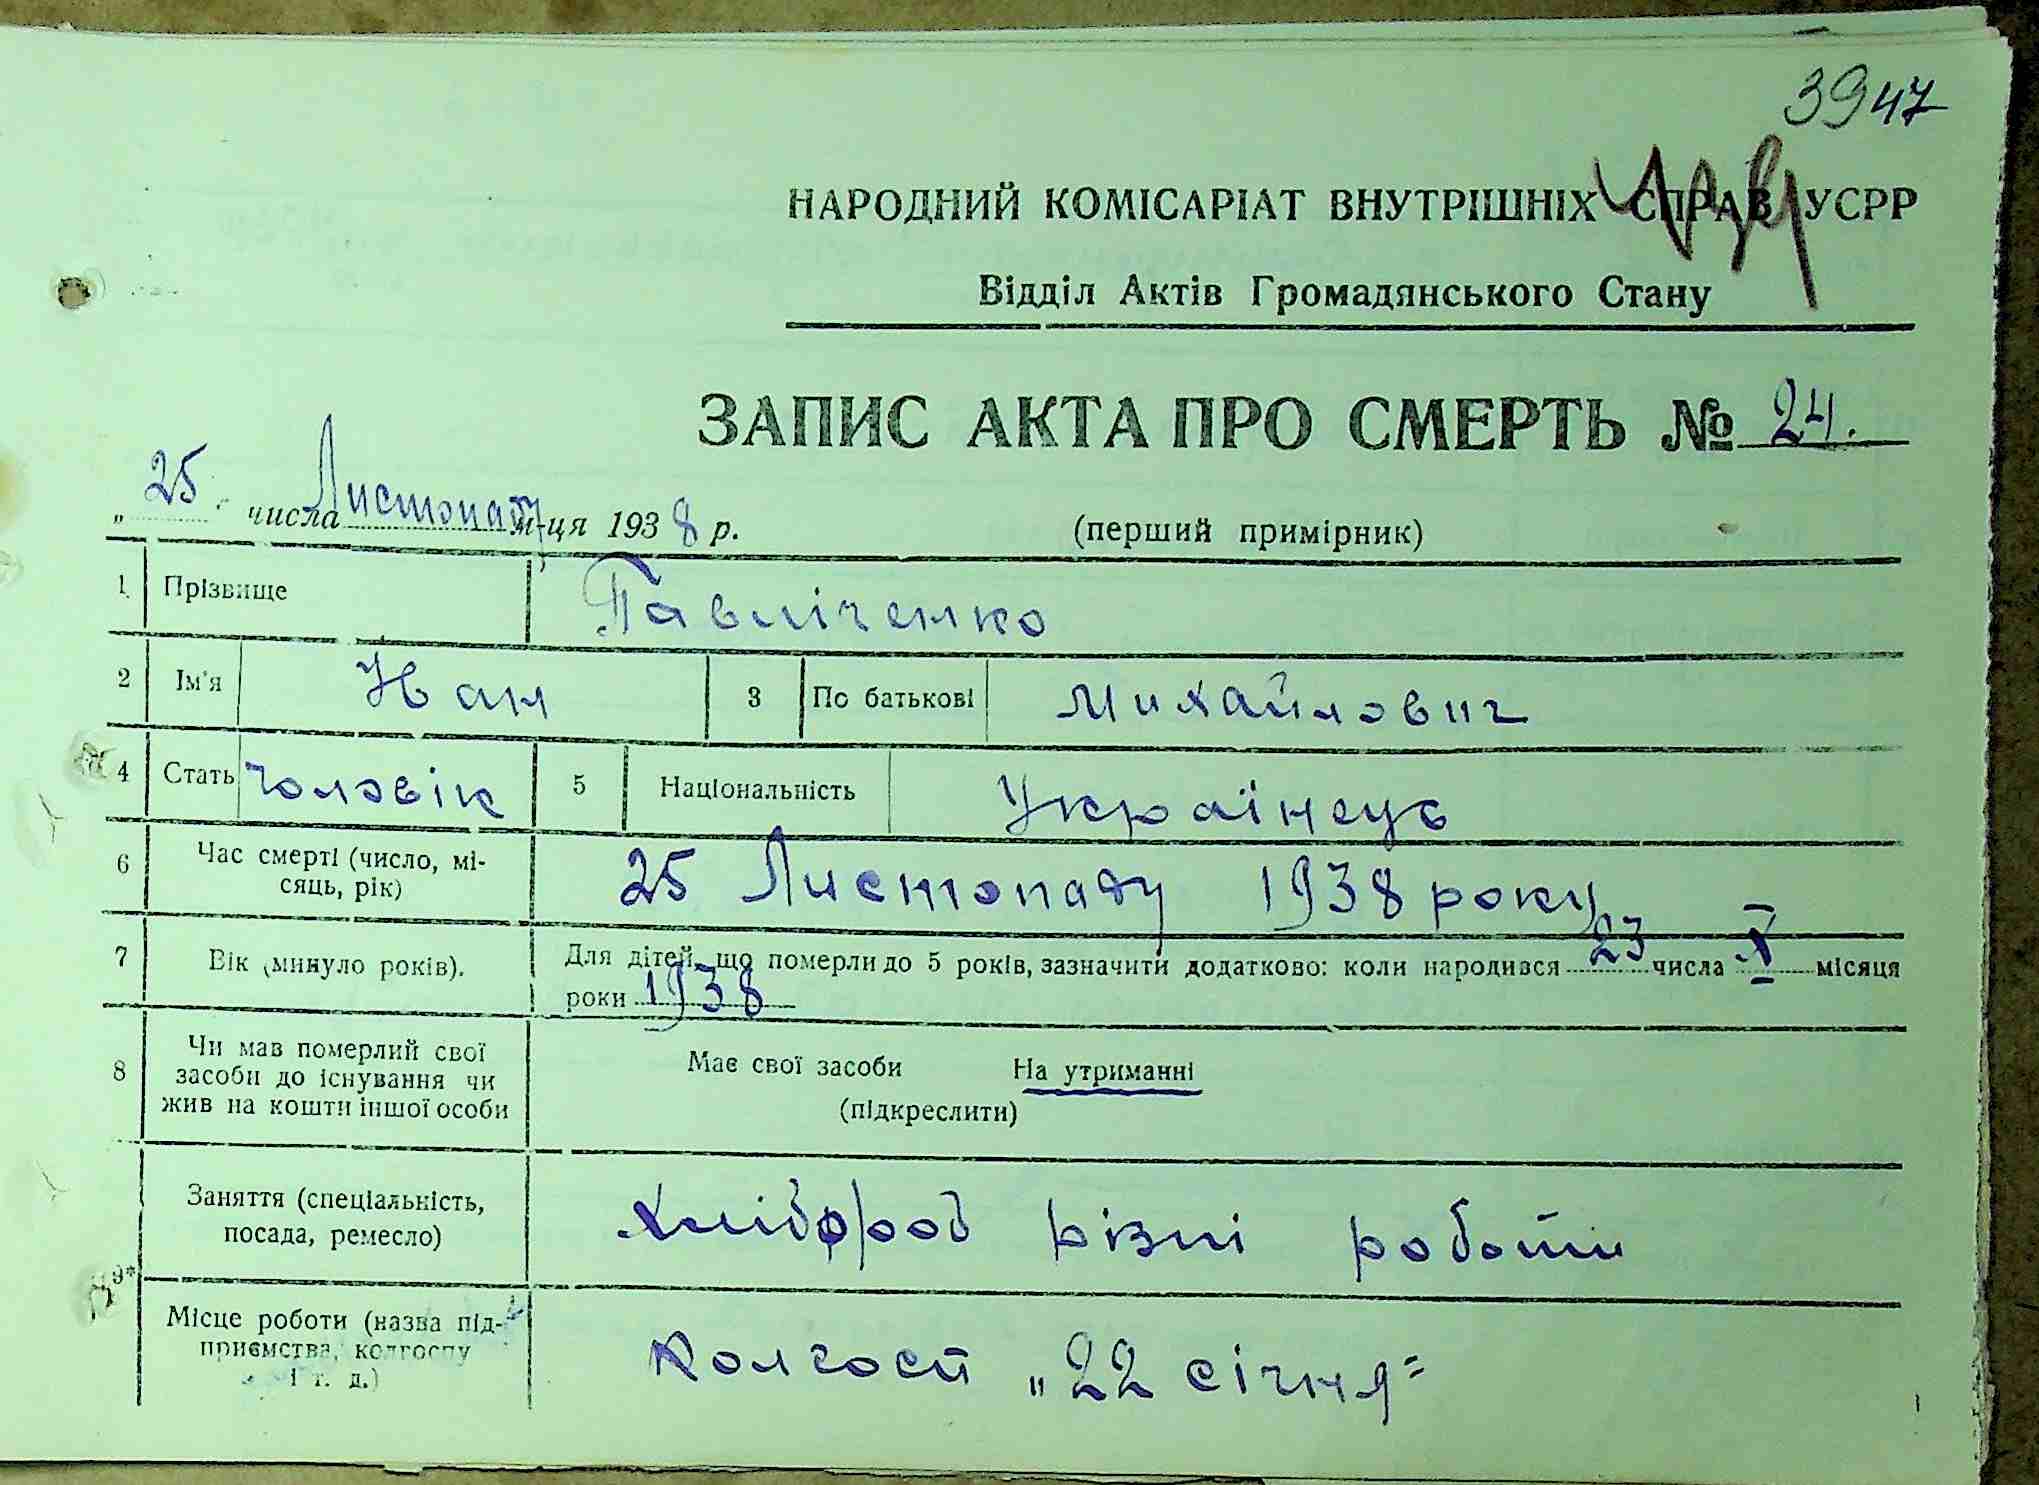 3947
НАРОДНИЙ КОМІСАРІАТ ВНУТРІШНІХ СПРАВ УСРР
Відділ Актів Громадянського Стану
ЗАПИС АКТА ПРО СМЕРТЬ № 24.
„ 25 " числа Листопаду м-ця 1938 р. (перший примірник)
1. Прізвище Павліченко
2 Ім'я Іван 3 По батькові Михайлович
4 Стать чоловік 5 Національність Українець
6 Час смерті (число, мі-
сяць, рік) 25 Листопаду 1938 року
7 Вік (минуло років). Для дітей, що померли до 5 років, зазначити додатково: коли народився 23 числа X місяця
роки 1938
8 Чи мав померлий свої
засоби до існування чи
жив на кошти іншої особи
Має свої засоби На утриманні
(підкреслити)
9*
Заняття (спеціальність,
посада, ремесло) різні роботи
Місце роботи (назва під-
приємства, колгоспу
і т. д.)
Колгосп „22 січня"